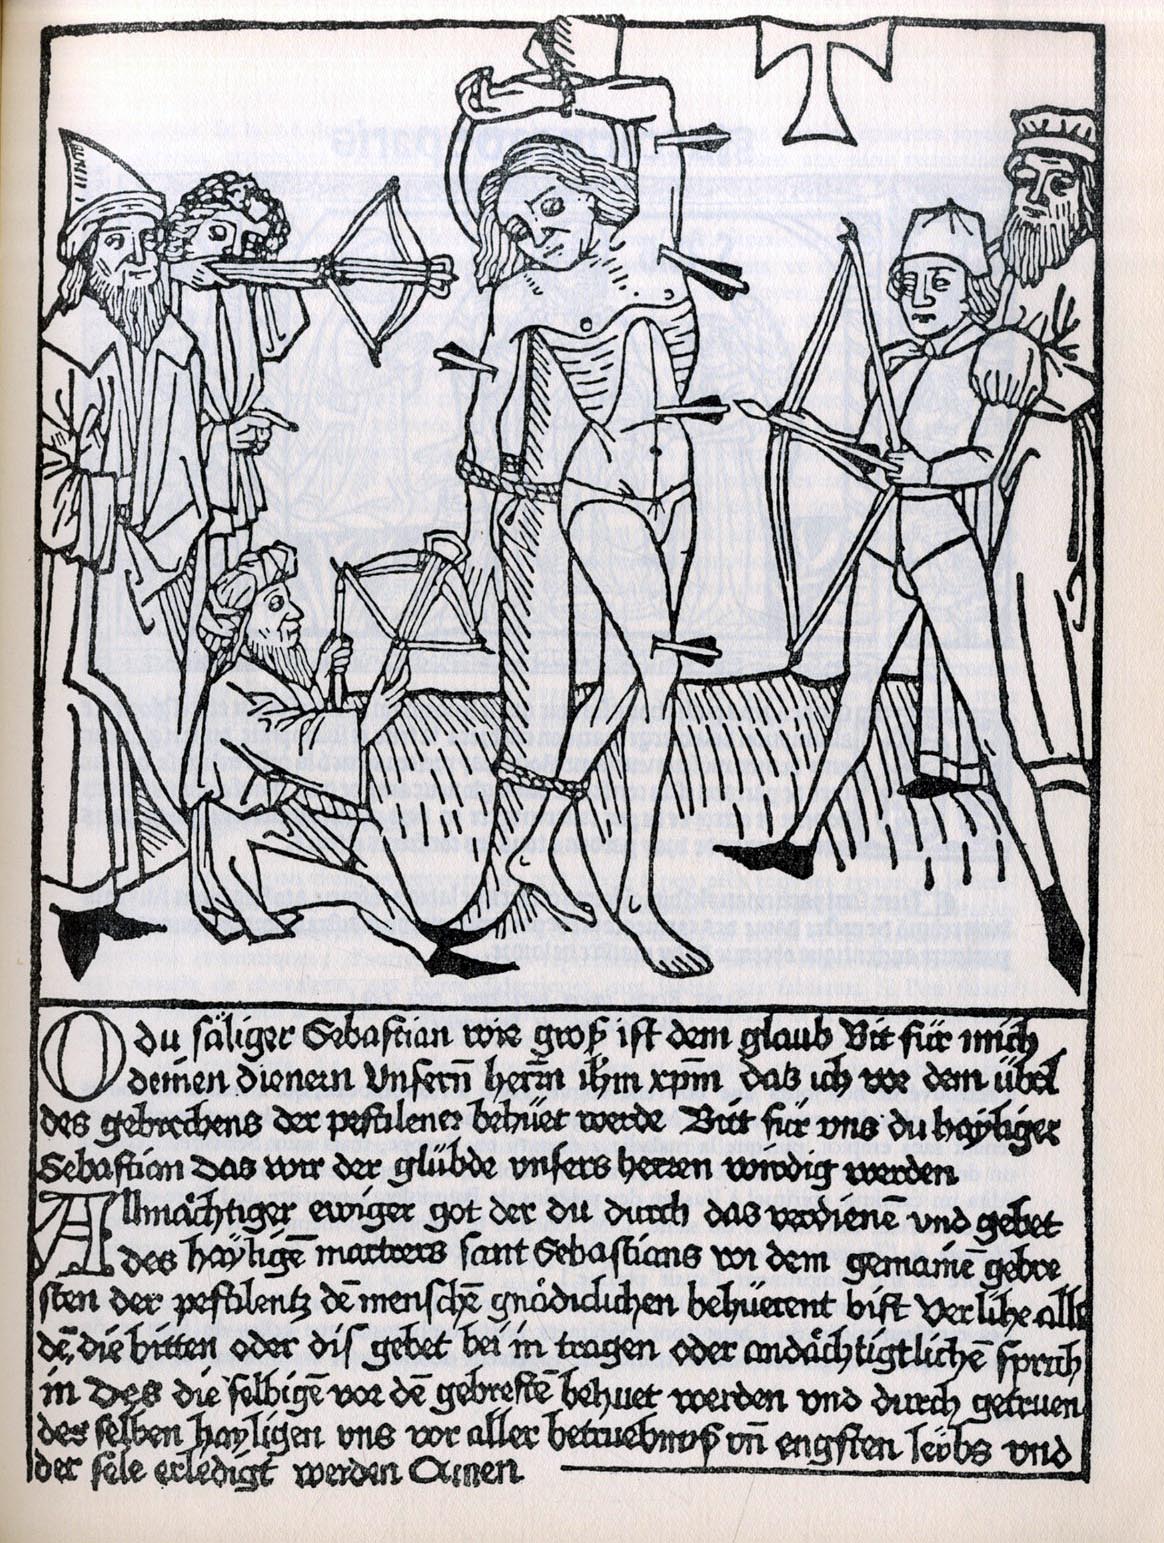 O du säliger Sebastian wie groß ist dem glaub Bit für mich
deinen dienern Unsern̄ herrn̄ ihm xp̄m das ich vor dem übel
des gebrechens der pestilencz behüet werde Bitt für vns du hayliger
Sebastian das wir der glübde vnsers herren wirdig werden
Allmächtiger ewiger got der du durch das verdienē vnd gebet
des hayligē martrers sant Sebastians vor dem gemainē gebre
sten der pestilentz dē menschē gnädiclichen behüetent bist Verlihe alle
dē die bitten oder dis gebet bei in tragen oder andächtigtlichē sprich
in Des die selbigē vor dē gebrestē behuet werden vnd durch getruen
des selben hayligen vns vor aller betruebnuß vn̄ engsten leybs vnd
der sele erledigt werden Amen